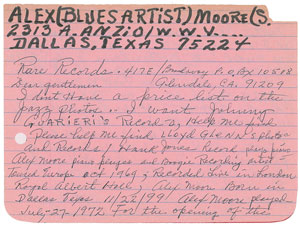 ALEX (BLUES ARTIST) MOORE (S.
2313 A. ANZIO / W.W.V.....
DALLAS, TEXAS 75224
Rare Records. 417 E / Broadway P.O. Box 10508
Dear gentlemen Glendale, CA. 91209
I dint Have a price list on the
jazz photos.. I want Johnny
GUARIERI'S Records, Help me find
Please help me find Lloyd Glenn's photos
and Records / Hank Jones Record plays piano
Alex Moore piano player and Boogie Recording artist
Toured Europe oct 1969 & Recorded Live in London
Royal Albert Hall, Alex Moore Born in
Dallas Texas 11/22/99. Alex Moore played
July-27-1972 For the opening of the